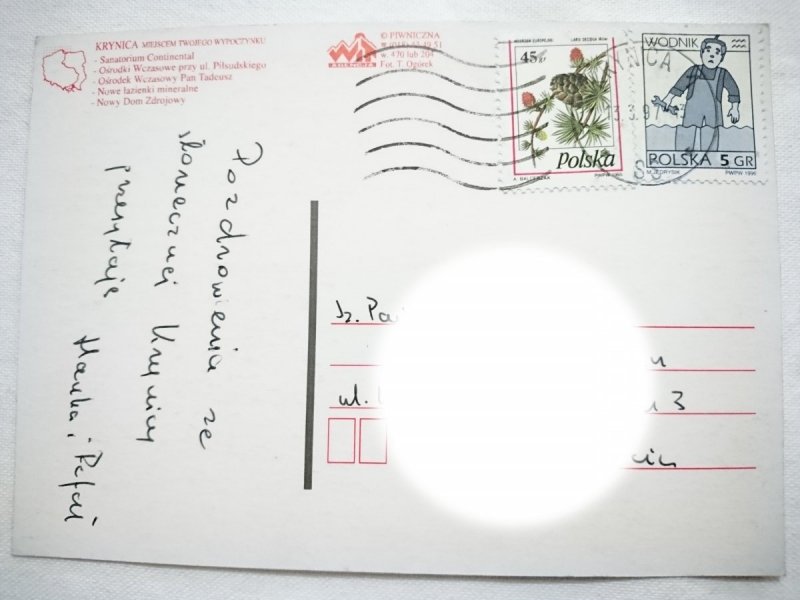 KRYNICA MIEJSCEM TWOJEGO WYPOCZYNKU
- Sanatorium Continental
- Ośrodki Wczasowe przy ul. Piłsudskiego
- Ośrodek Wczasowy Pan Tadeusz
- Nowe łazienki mineralne
- Nowy Dom Zdrojowy
© PIWNICZNA
w. 470 lub 204
Fot. T. Ogórek
45 gr
Polska
WODNIK
POLSKA 5 GR
PWPW 1996
Pozdrowienia ze
słonecznej Krynicy
przesyłają
Hanka i Rafał
Sz.
ul.
3